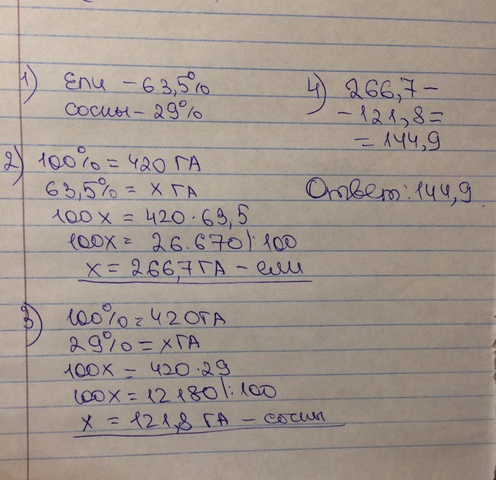 1) Ели - 63,5%
сосны - 29%
2) 100% = 420 ГА
63,5% = х ГА
100х = 420 · 63,5
100х = 26.670 |: 100
х = 266,7 ГА - ели
3) 100% = 420 ГА
29% = х ГА
100х = 420 · 29
100х = 12180 |: 100
х = 121,8 ГА - сосны
4) 266,7 -
- 121,8 =
= 144,9
Ответ: 144,9.